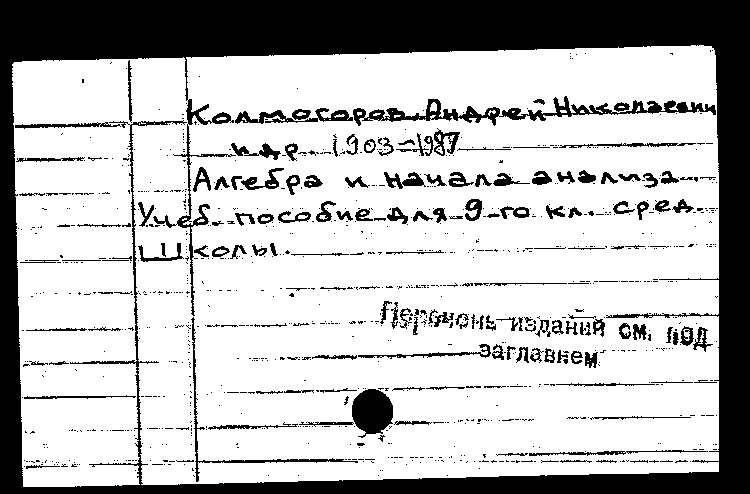 Колмогоров, Андрей Николаевич
и др. 1903-1987
Алгебра и начала анализа.
Учеб. пособие для 9-го кл. сред.
школы.
Перечень изданий см. под
заглавием